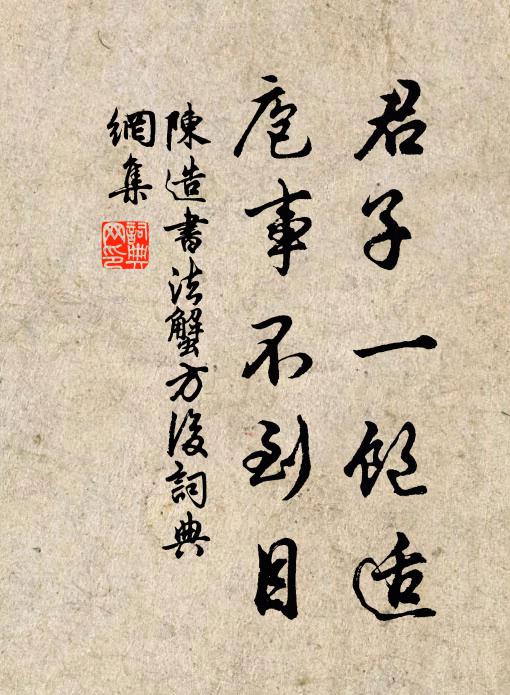 君子一飽适
庖事不到目
陳造書法蟹方後詞典
網集
詞典
网印